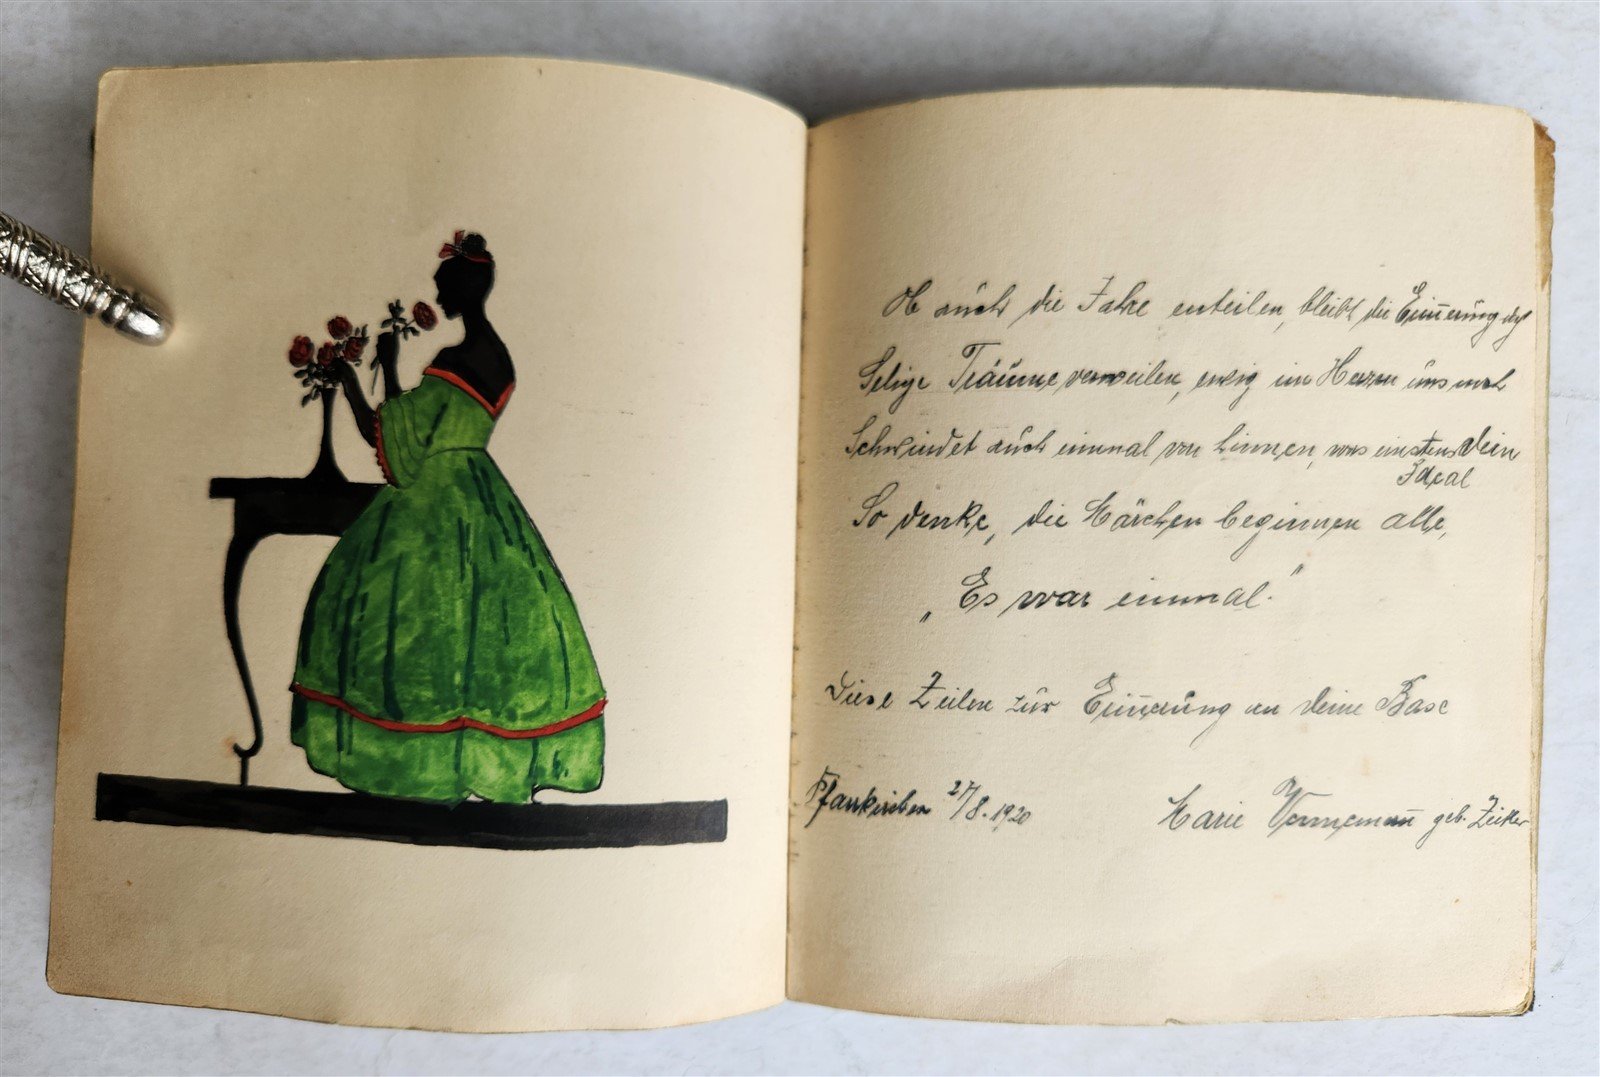 Ob auch die Jahre enteilen, bleibt die Erin̄erung doch
Selige Träume verweilen, ewig im Herzen uns noch
Schwindet auch einmal von hinnen, was einstens Dein
Ideal
So denke, die Märchen beginnen alle,
„Es war einmal."
Diese Zeilen zur Erin̄erung an deine Base
27/8. 1920
Marie geb.